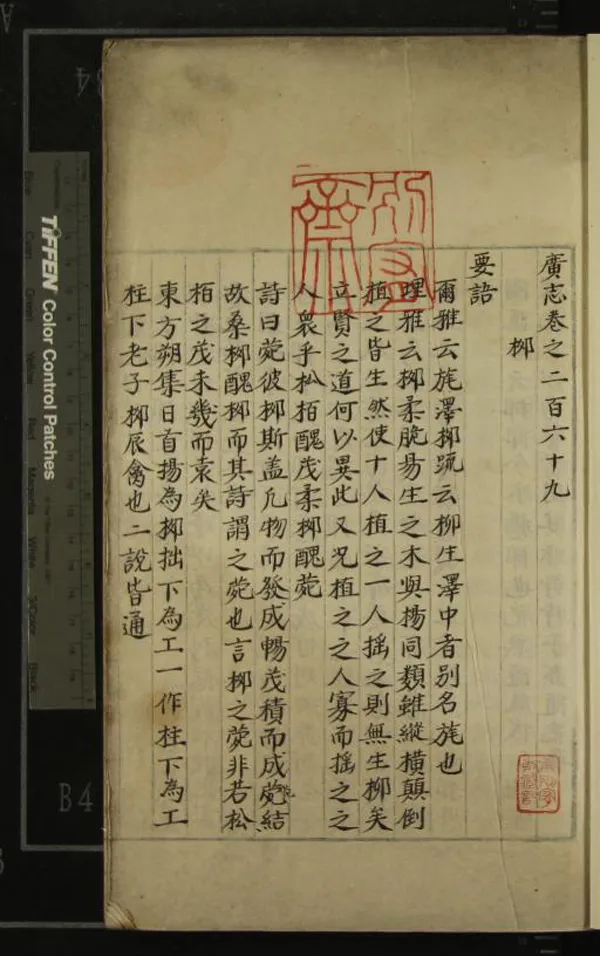 廣志卷之二百六十九
柳
要語
爾雅云旄澤柳䟽云柳生澤中者别名旄也
埋雅云柳柔脆易生之木與楊同類雖縱横顛倒
植之皆生然使十人植之一人揺之則無生柳矣
立賢之道何以異此又况植之之人寡而揺之之
人衆乎松栢醜茂柔柳醜菀
詩曰菀彼柳斯盖凡物而發成暢茂積而成菀菀結
故桑柳醜柳而其詩謂之菀也言柳之菀非若松
栢之茂未幾而衰矣
東方朔集日首揚為柳拙下為工一作柱下為工
柱下老子柳辰禽也二說皆通
TIFFEN Color Control Patches
Blue
Cyan
Green
Yellow
Red
Magenta
White
3/Color
Black
B4
A